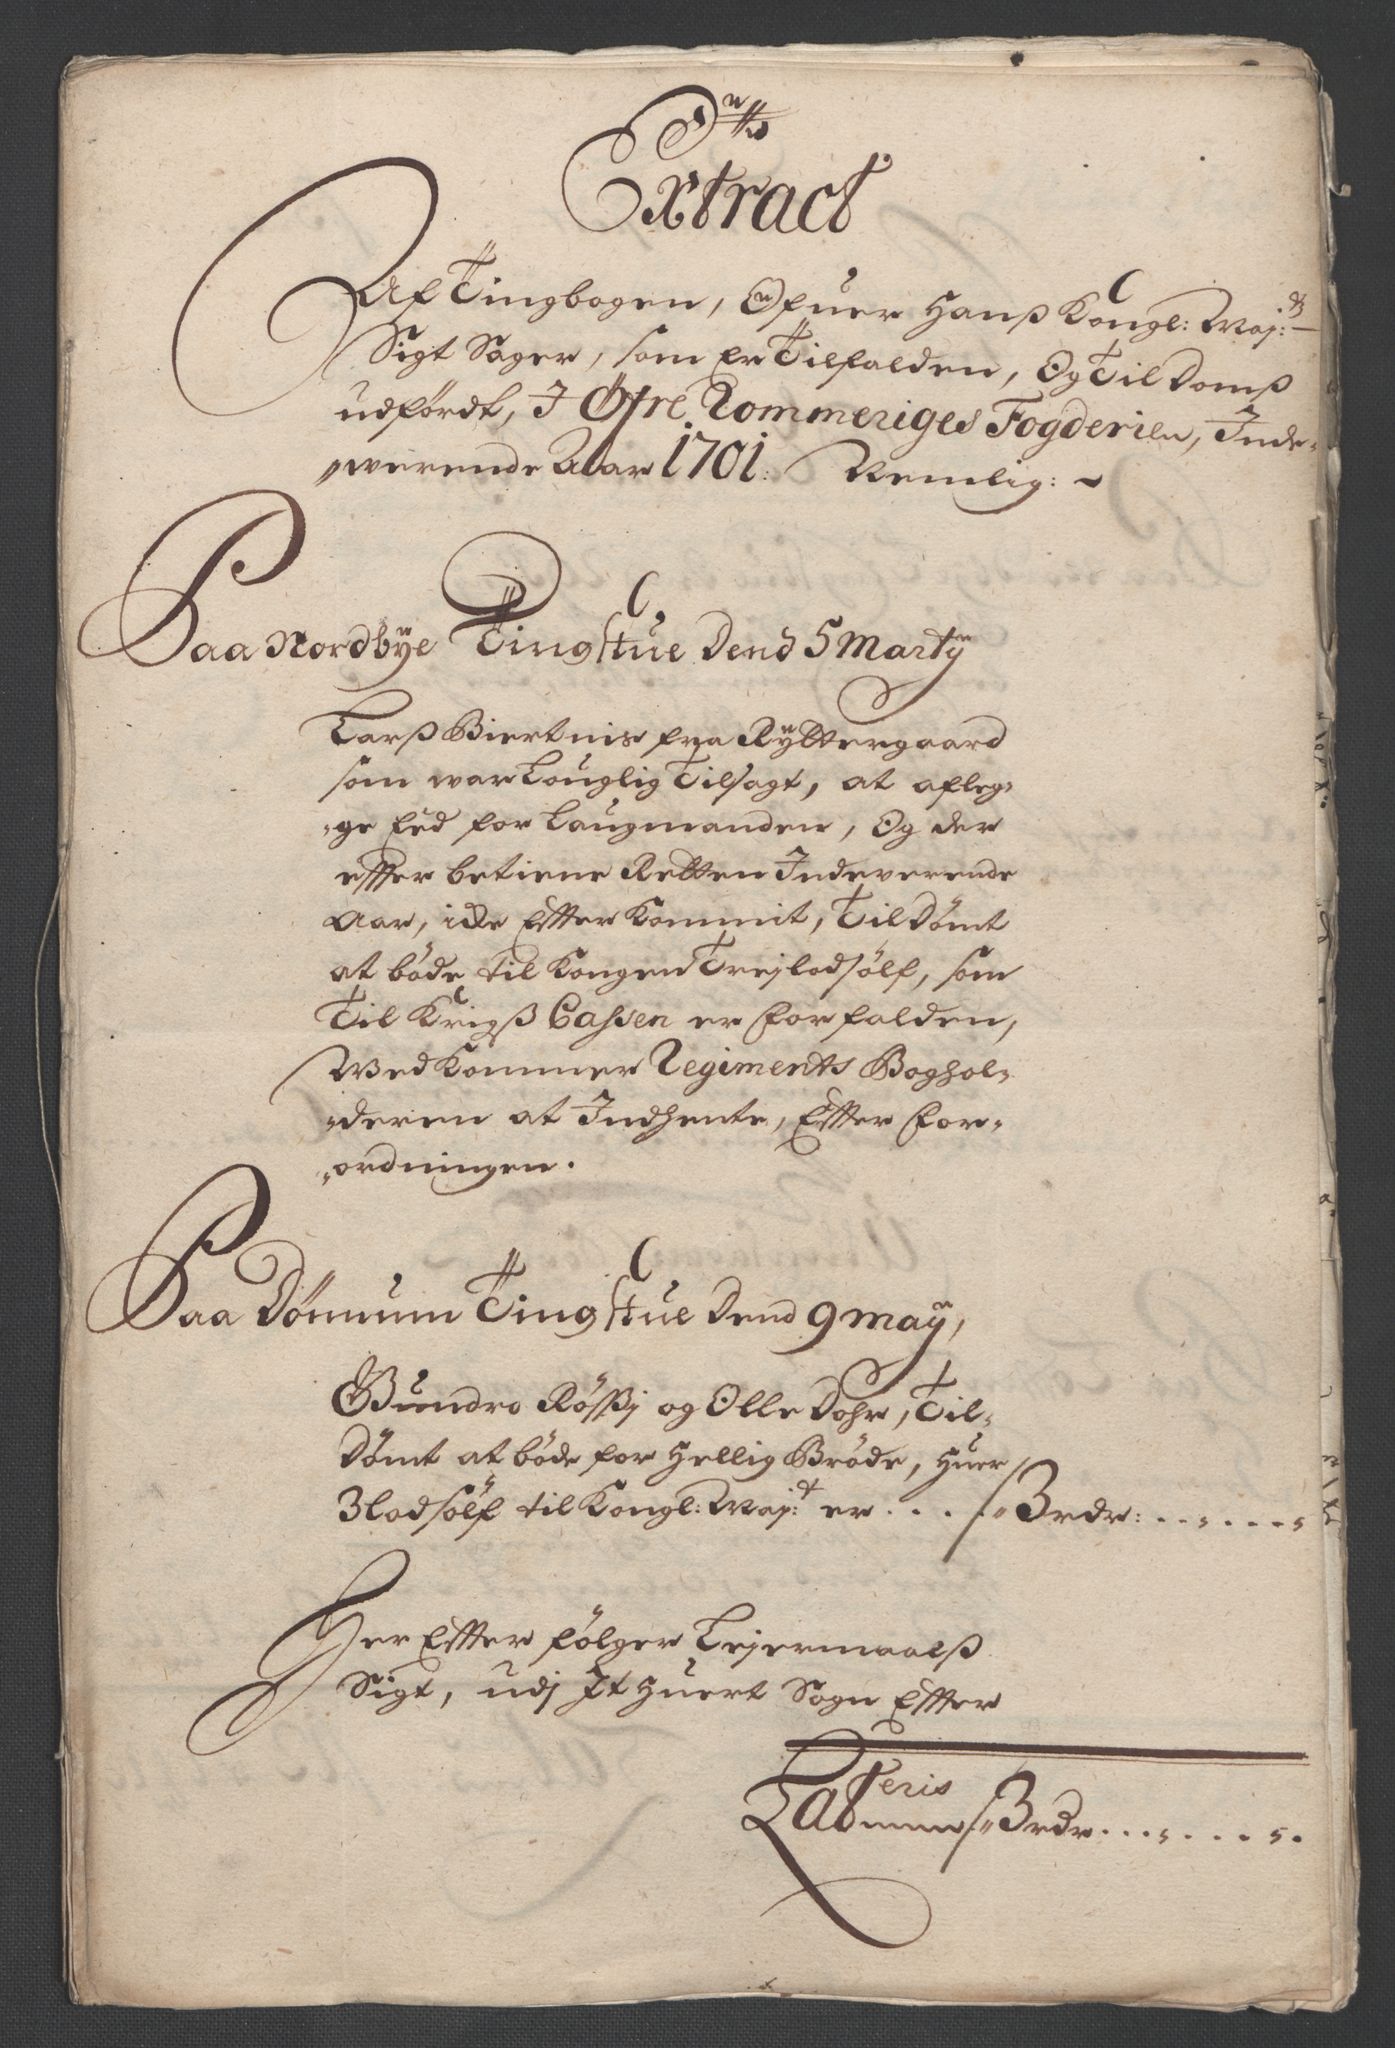 Extract
Af Tingbogen, Ofuer Hanß Kongl: Maj:
Sigt Sager, som Er Tilfalden, Og Til Domß
udførdt, I Øfre Rommeriges Fogderie, Inde-
werende Aar 1701. Nemlig:
Paa Nordbye Tingstue Dend 5 Marty
Larß Biertnis fra Ryttergaard
som war Louglig Tilsagt, at afleg-
ge Eed for Laugmanden, Og der
effter betiene Retten Indeverende
Aar, icke Effter Kommit, Til Dømt
at bøde til Kongen Trej lod sølf, som
Til Krigß Cassen er forfalden,
Wed Kommer Regiments Boghol-
deren at Indhente, Effter for-
ordningen.
Paa Dønnum Tingstue Dend 9 may,
Gundro Røßj og Olle Dohr, Til-
Dømt at bøde for Hellig Brøde, Huer
3 lod sølf til Kongl: Maj:t er . . . 3 rdr: . . . . . .
Her Effter følger Lejermaalß
Sigt, udj It Huert Sogn Effter
Lateris 3 rdr . . . . . . .